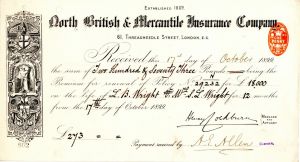 ESTABLISHED 1809.
North British & Mercantile Insurance Company,
61, THREADNEEDLE STREET, LONDON, E.C.
Received this 17 day of October 18
the sum of Two Hundred & Seventy Three Pounds being the
Premium for renewal of Policy No 29232 of £ 18000
on the Life of L. B. Wright & Mrs S. L. Wright for 12 months
from the 17th day of October 18
Henry Cockburn
MANAGER AND ACTUARY
£ 273
Payment received by A. E. Allen